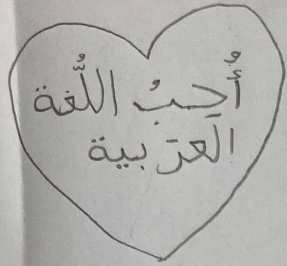 أُحبُ اللُّغة
العَربية